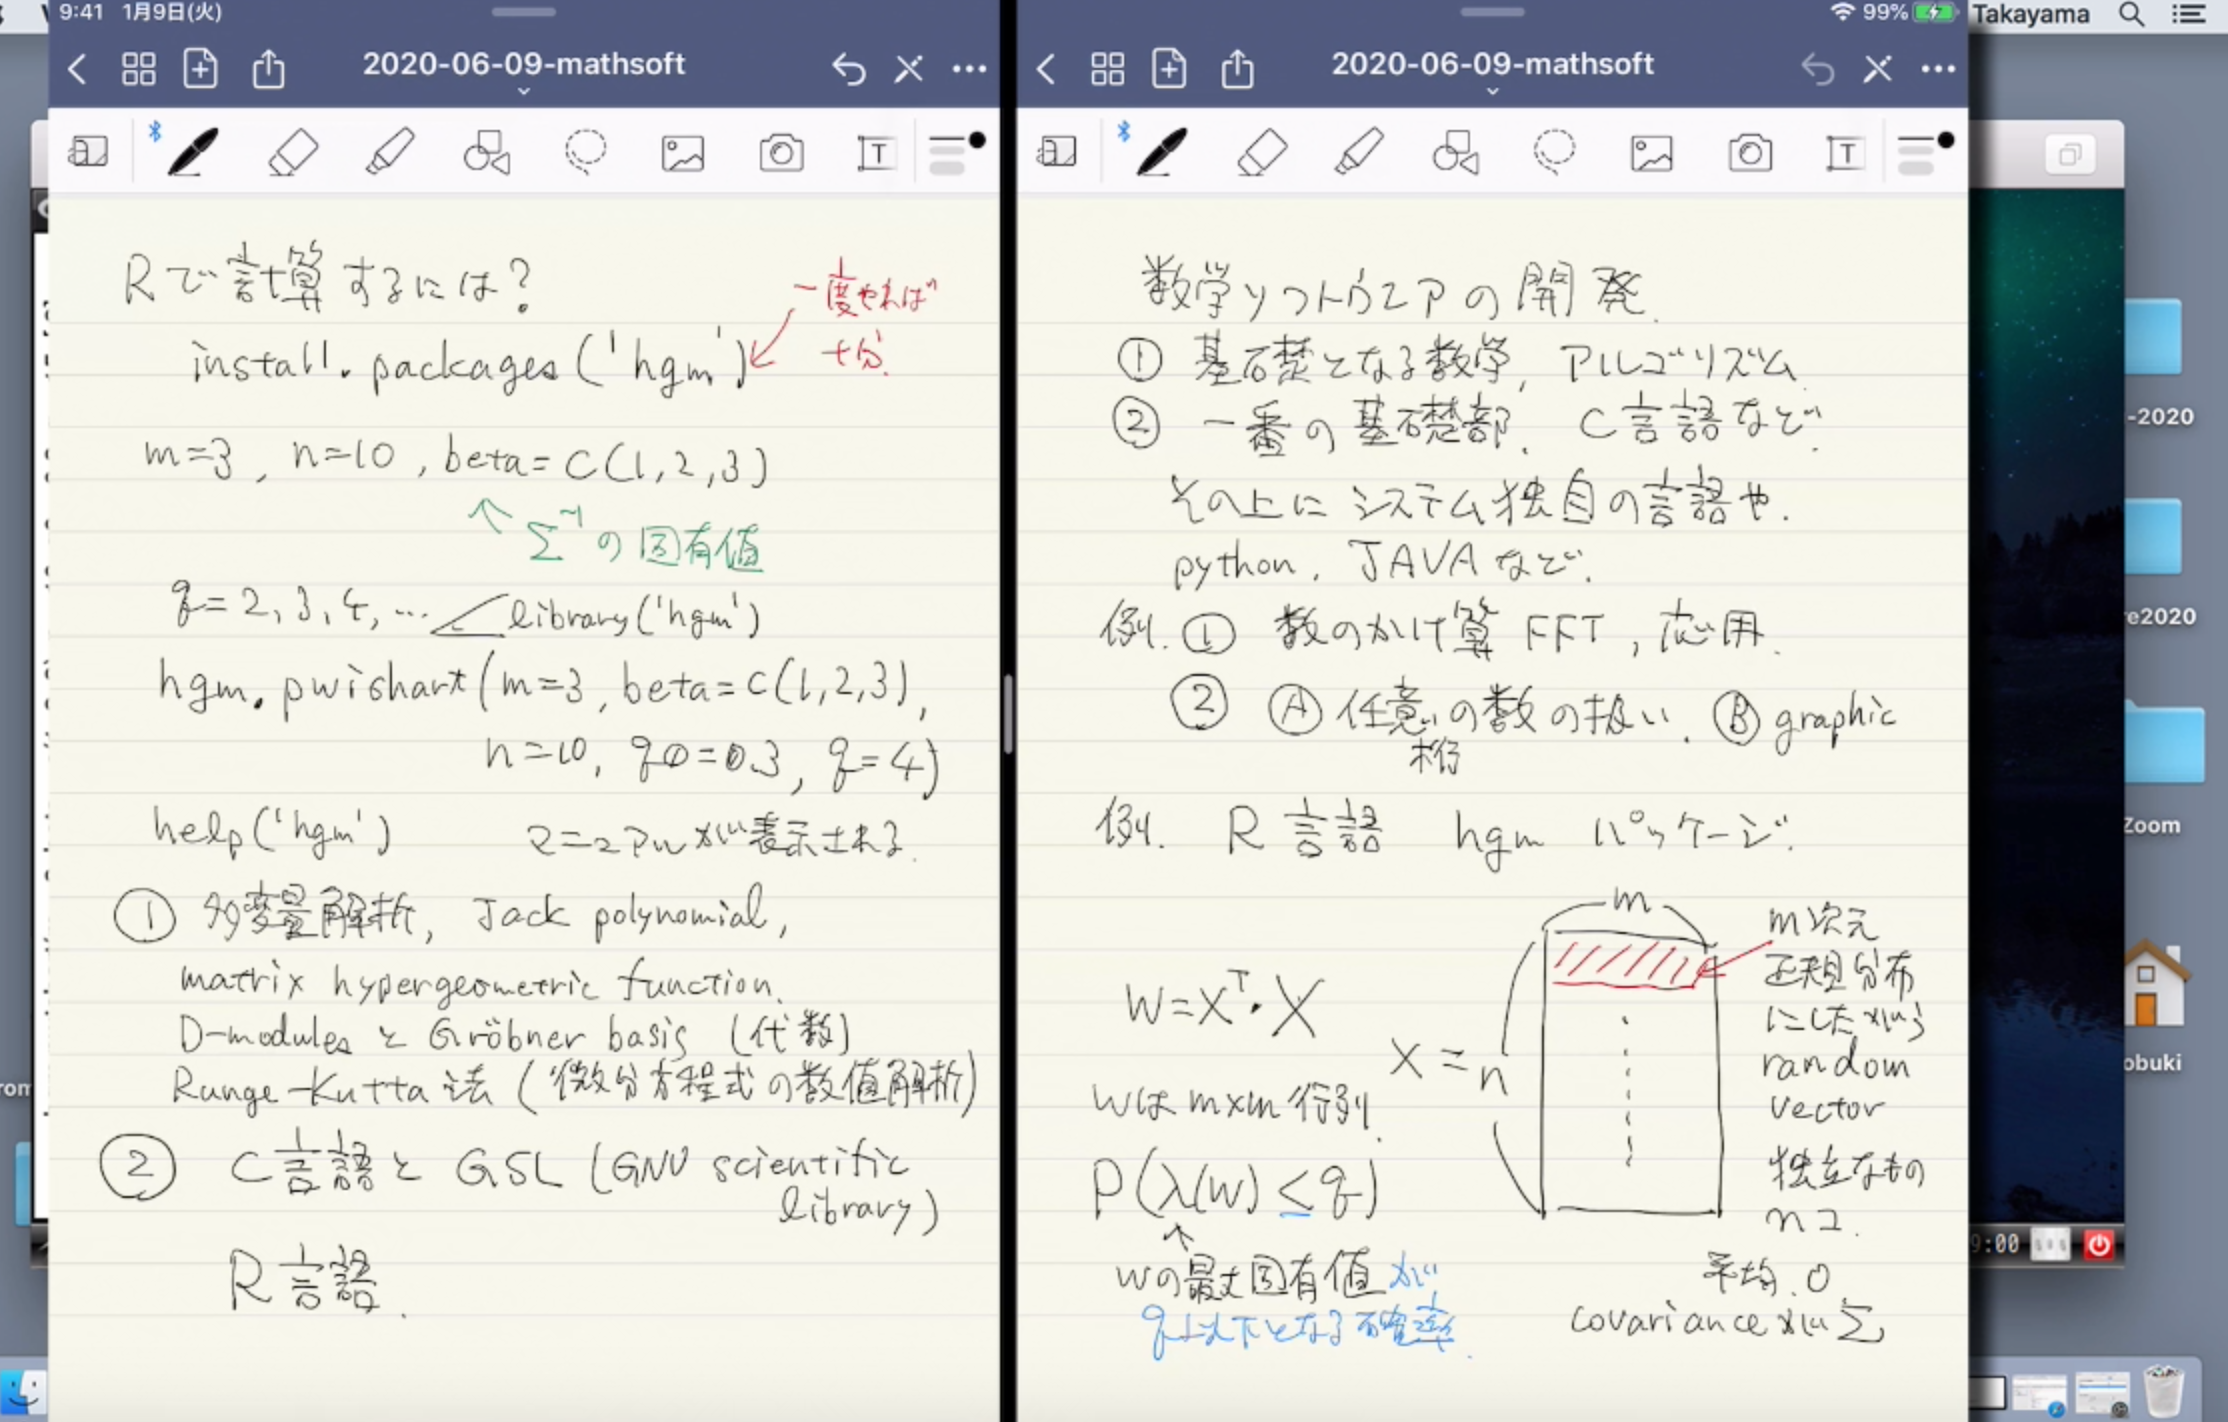 9:41 1月9日(火)
99%
Takayama
2020-06-09-mathsoft
2020-06-09-mathsoft
Rで計算するには?
一度やれば
十分.
install.packages('hgm')
m=3, n=10, beta=c(1,2,3)
Σ⁻¹の固有値
q=2,3,4,… library('hgm')
hgm.pwishart(m=3, beta=c(1,2,3),
n=10, q0=0.3, q=4)
help('hgm') マニュアルが表示される.
① 多変量解析, Jack polynomial,
matrix hypergeometric function.
D-modules と Gröbner basis (代数)
Runge-Kutta法 (微分方程式の数値解析)
② C言語と GSL (GNU scientific
library)
R言語.
数学ソフトウェアの開発.
① 基礎となる数学, アルゴリズム.
② 一番の基礎部. C言語など.
その上にシステム独自の言語や.
python, JAVAなど.
例.① 数のかけ算 FFT, 応用.
② Ⓐ 任意の数の扱い. Ⓑ graphic
桁
例. R言語 hgm パッケージ.
m
W=Xᵀ・X
X = n
m次元
正規分布
にしたがう
random
vector
独立なもの
nコ.
平均.0
covarianceがΣ
Wは m×m 行列.
P(λ(W) ≤ q)
Wの最大固有値が
q以下となる確率.
-2020
re2020
Zoom
obuki
rom
9:00